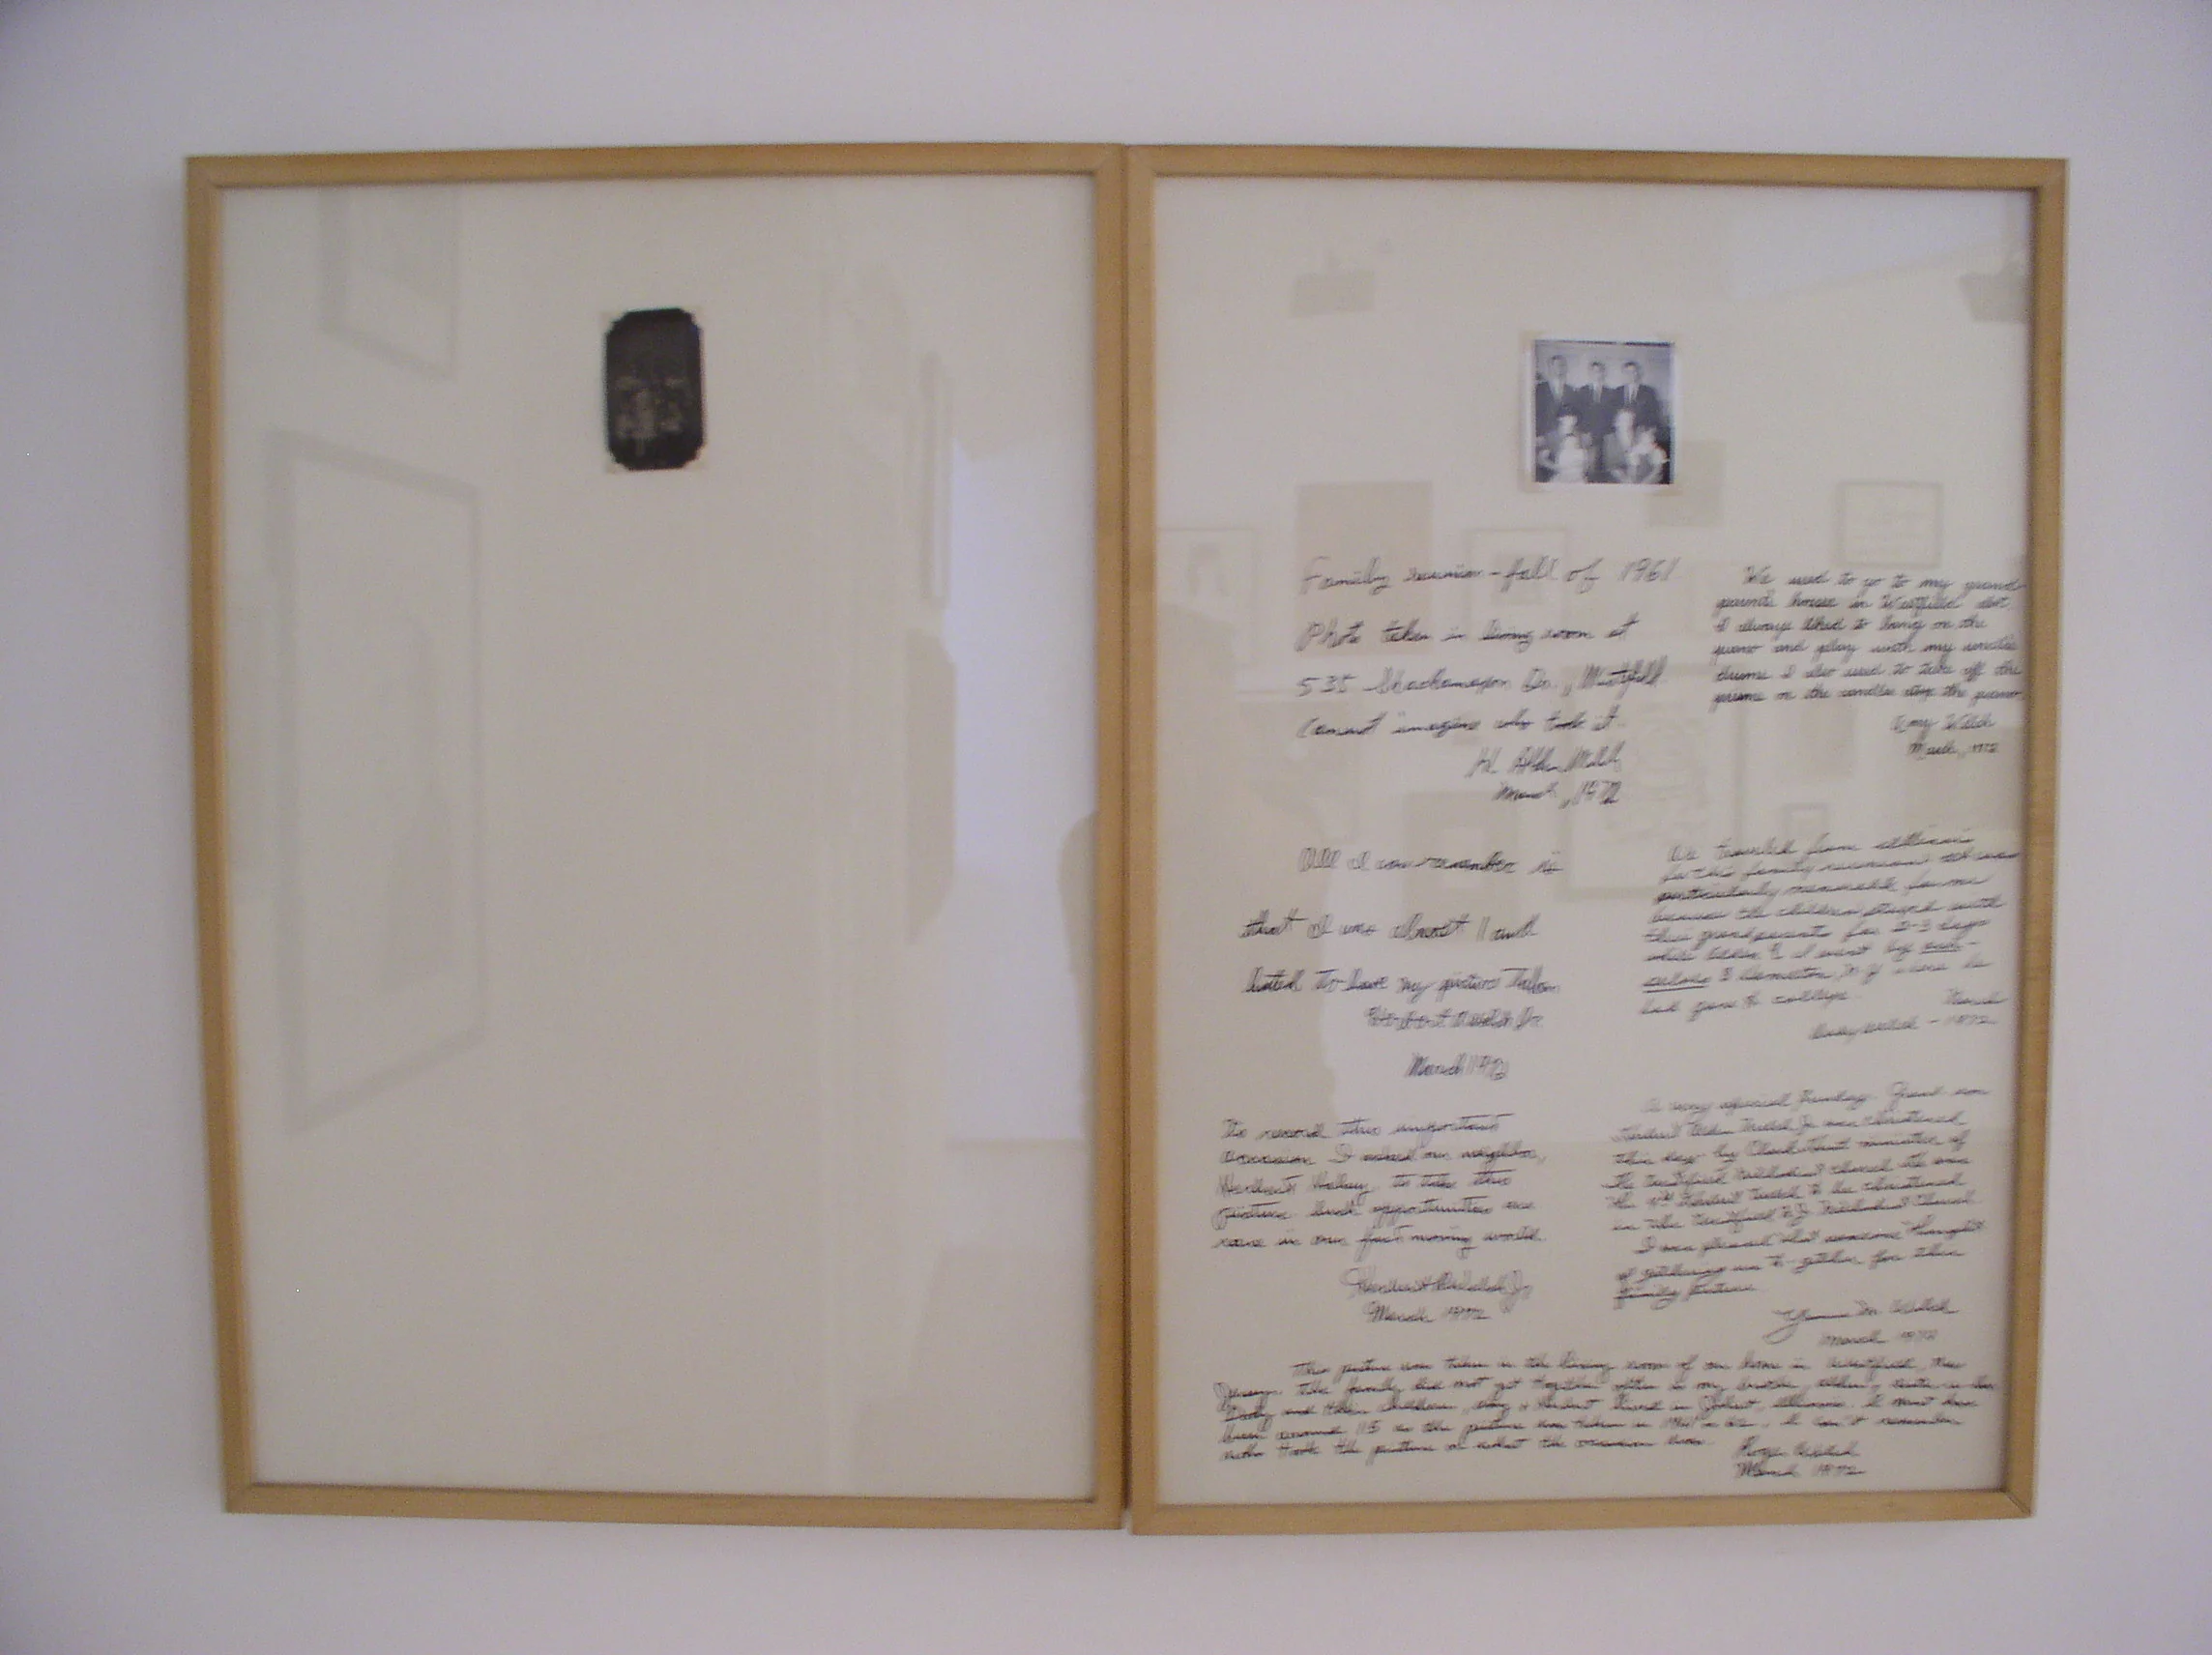 Family reunion - fall of 1961
Photo taken in living room at
535 Dr., Westfield.
Cannot imagine who took it.
March, 1972
We used to go to my grand
parents house in Westfield
I always liked to bang on the
piano and play with my uncle's
drums I also used to take off the
on the candles the piano
Amy Welch
March, 1972
All I can remember is
that I was almost 1 and
hated to have my picture taken
March 1972
We traveled from Illinois
for this family reunion
particularly memorable for me
because the children stayed with
their grandparents for 2-3 days
while I went by
had gone to college.
March
Welch - 1972
To record this important
occasion I asked our neighbor,
Herbert to take this
picture. Such opportunities are
rare in our fast moving world.
March 1972
A very special Sunday. Grand son
was christened
this day by minister of
the Westfield Methodist Church. He was
the Herbert Welch to be christened
in the Westfield N.J. Methodist Church
I was pleased that someone thought
of gathering us together for this
family picture.
M. Welch
March 1972
This picture was taken in the living room of our home in Westfield, New
Jersey. The family did not get together often as my brother, his
and children, Amy & Herbert lived in Joliet, Illinois. I must have
been around 15 as the picture was taken in 1961 or 62. I can't remember
who took the picture or what the occasion was.
Roger Welch
March 1972